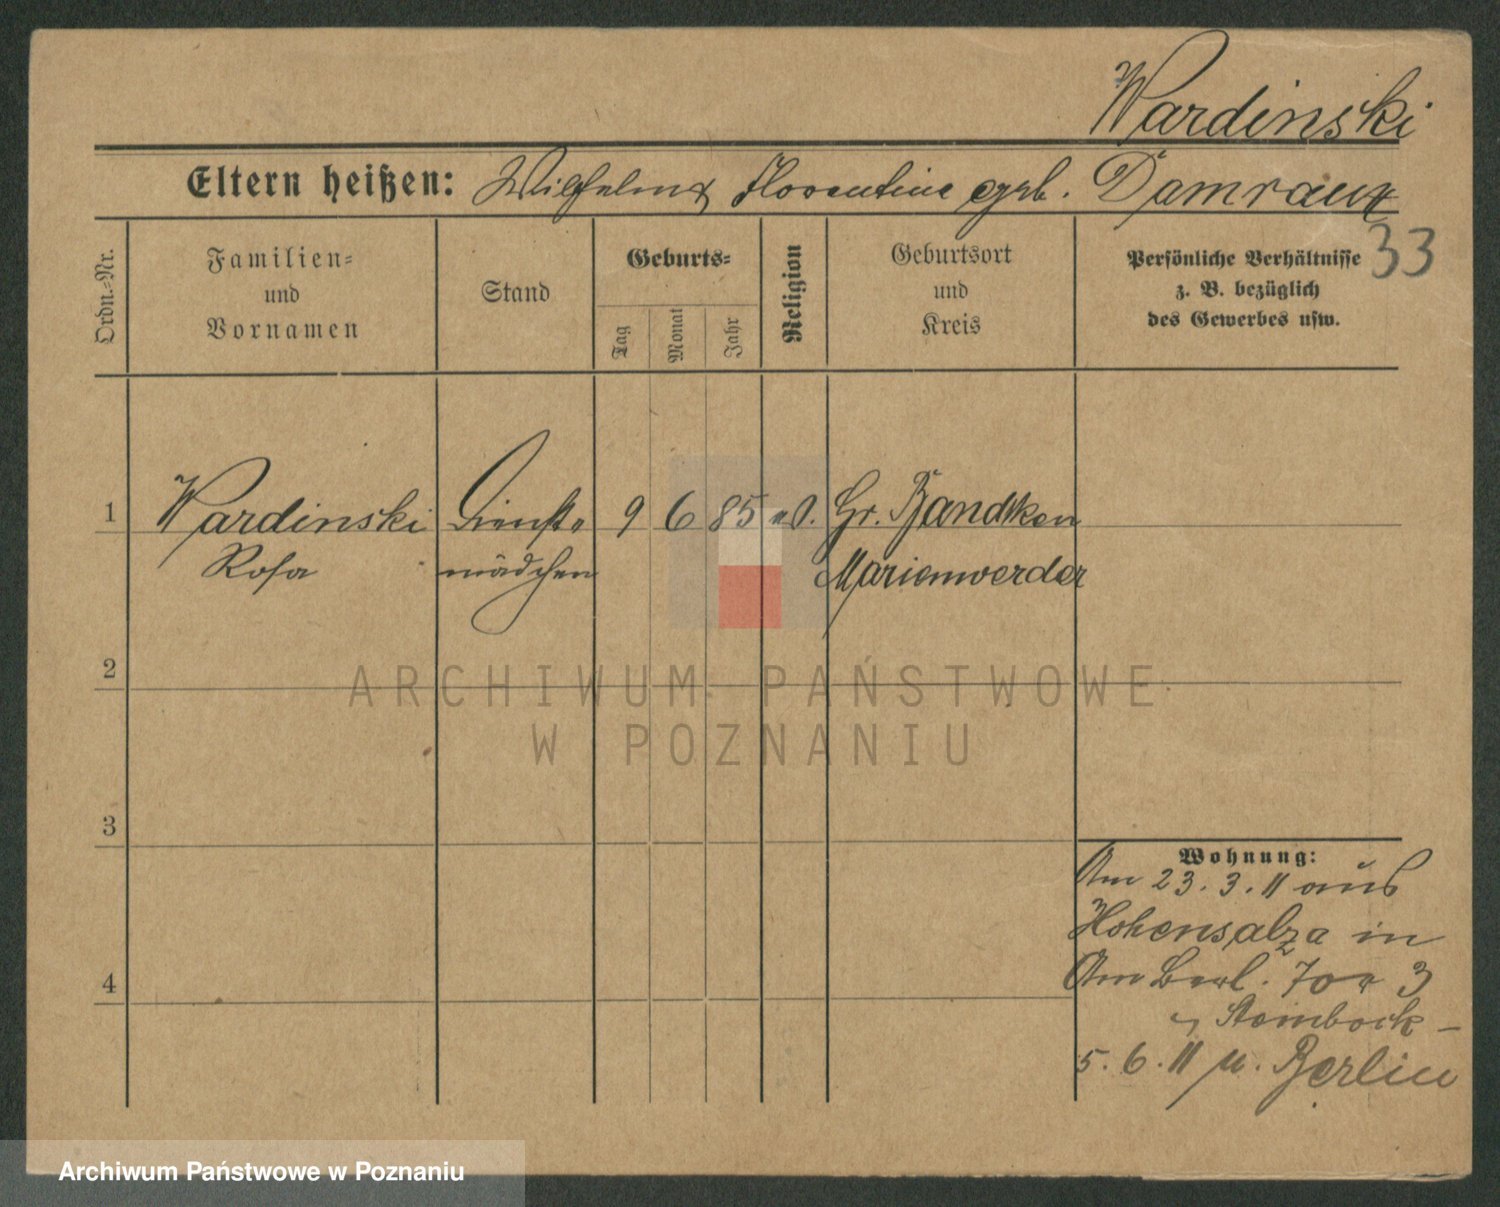 Wardinski
Eltern heißen: Wilhelm u. Florentine geb. Damrau
33
Ordn.-Nr.
Familien-
und
Vornamen
Stand
Geburts-
Tag
Monat
Jahr
Religion
Geburtsort
und
Kreis
Persönliche Verhältnisse
z. B. bezüglich
des Gewerbes usw.
1 Wardinski Dienst- 9 6 85 ev. Gr. Bandtken
Rosa mädchen Marienwerder
2
ARCHIWUM PAŃSTWOWE
W POZNANIU
3
Wohnung:
Am 23. 3. 11 aus
Hohensalza in
Am Berl. Tor 3
4
Steinbock -
5. 6. 11 n. Berlin
Archiwum Państwowe w Poznaniu